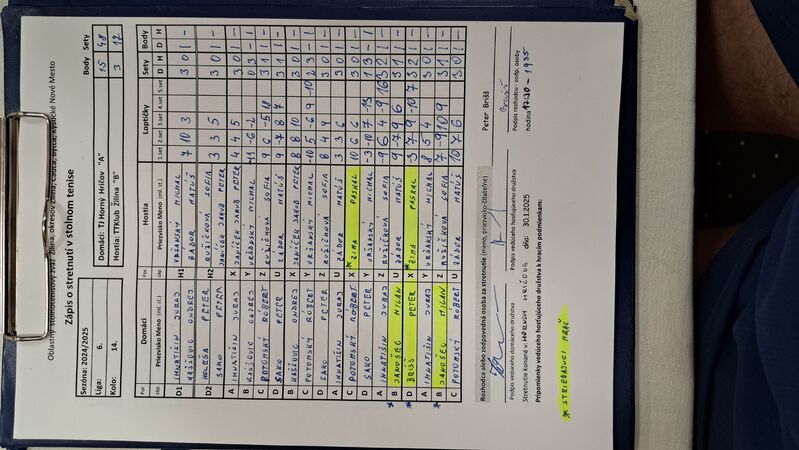 Oblastný stolnotenisový zväz Žilina, okresov Žilina, Čadca, Bytča, Kysucké Nové Mesto
Zápis o stretnutí v stolnom tenise
Sezóna: 2024/2025
Liga: 6.
Kolo: 14.
Body Sety
Domáci: TJ Horný Hričov "A" 15 48
Hostia: TTKlub Žilina "B" 3 17
Domáci Hostia Loptičky Sety Body
Por. Priezvisko Meno (ml. st.) zák. Por. Priezvisko Meno (ml. st.) 1.set 2.set 3.set 4.set 5.set D H D H
D1 IHNATIŠIN JURAJ H1 VRŽANSKÝ MICHAL 7 10 3 3 0 1 -
KAŠŠOVIC ONDREJ ZÁDOR MATÚŠ
D2 PETER H2 RUŽIČKOVÁ SOFIA 3 3 5 3 0 1 -
SAKO PETER JANÍČEK JAKUB PETER
A IHNATIŠIN JURAJ X JANÍČEK JAKUB PETER 4 4 5 3 0 1 -
B KAŠŠOVIC ONDREJ Y VRŽANSKÝ MICHAL
C POTOMSKÝ ROBERT Z RUŽIČKOVÁ SOFIA 9 6 -5 18 3 1 1 -
D SAKO PETER U ZÁDOR MATÚŠ 9 -7 8 7 3 1 1 -
B KAŠŠOVIC ONDREJ X JANÍČEK JAKUB PETER 8 8 10 3 0 1 -
C POTOMSKÝ ROBERT Y VRŽANSKÝ MICHAL -10 5 -6 9 10
D SAKO PETER Z RUŽIČKOVÁ SOFIA 8 4 9 3 0 1 -
A IHNATIŠIN JURAJ U ZÁDOR MATÚŠ 3 3 6 3 0 1 -
C POTOMSKÝ ROBERT X * ZIMA PASKAL 10 6 6 3 0 1 -
D SAKO PETER Y VRŽANSKÝ MICHAL -3 -10 7 -13 1 3 - 1
A IHNATIŠIN JURAJ Z RUŽIČKOVÁ SOFIA -9 6 4 -9 16 3 2 1 -
* B JANOŠEC MILAN U ZÁDOR MATÚŠ 9 -7 9 6 3 1 1 -
* D BRIŠŠ PETER X * ZIMA PASKAL -3 7 9 -10 7 3 2 1 -
A IHNATIŠIN JURAJ Y VRŽANSKÝ MICHAL 8 5 4 3 0 1 -
* B JANOŠEC MILAN Z RUŽIČKOVÁ SOFIA 7 -9 10 9 3 1 1 -
C POTOMSKÝ ROBERT U ZÁDOR MATÚŠ 10 7 6 3 0 1 -
Rozhodca alebo zodpovedná osoba za stretnutie (meno, priezvisko-čitateľne) Peter Brišš
Podpis vedúceho domáceho družstva Podpis vedúceho hosťujúceho družstva Podpis rozhodcu - zodp. osoby
Stretnutie konané v: HORNOM HRIČOVE dňa: 30.1.2025 hodina 17:30 - 1935
Pripomienky vedúceho hosťujúceho družstva k hracím podmienkam:
* STRIEDAJÚCI HRÁČ